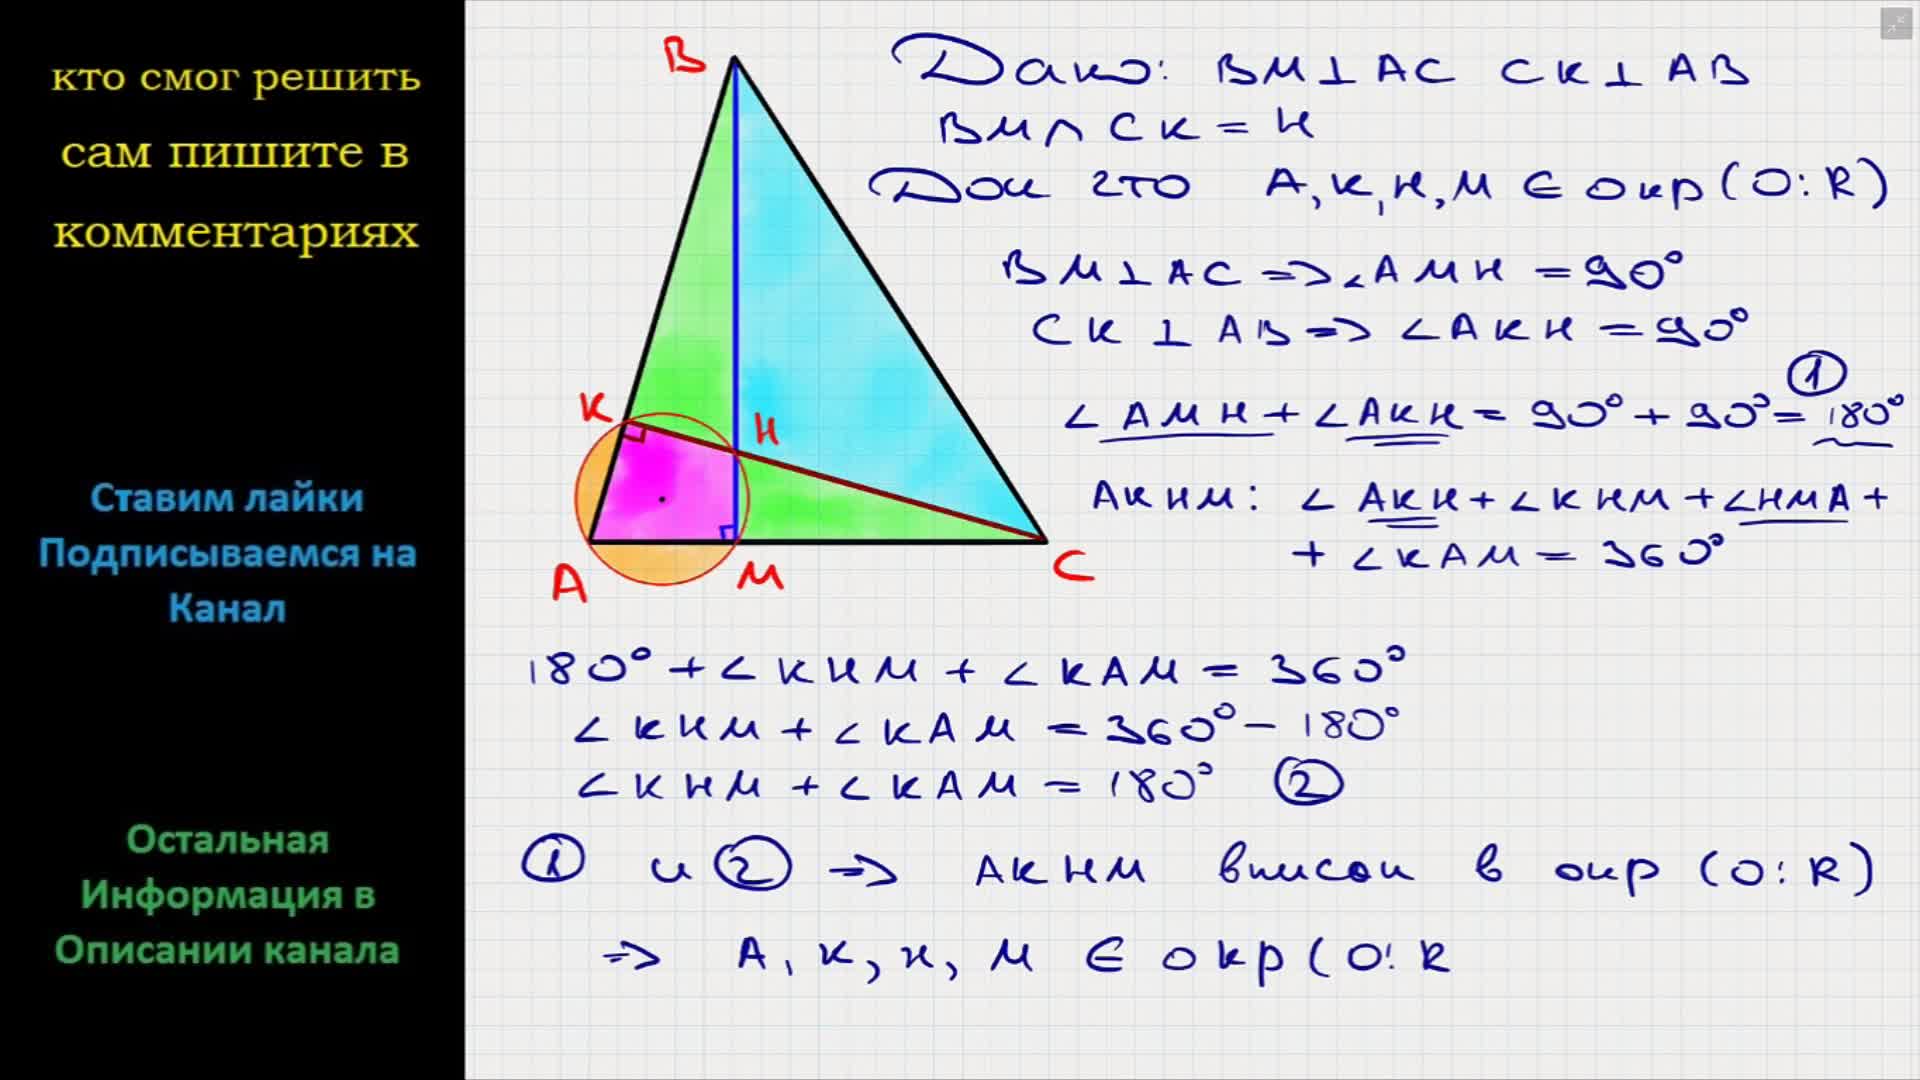 кто смог решить
сам пишите в
комментариях
Ставим лайки
Подписываемся на
Канал
Остальная
Информация в
Описании канала
B
K
H
A
M
C
Дано: BM⊥AC CK⊥AB
BM∩CK=H
Док что A,K,H,M ∈ окр(O:R)
BM⊥AC => ∠AMH = 90°
CK⊥AB => ∠AKH = 90°
①
∠AMH + ∠AKH = 90° + 90° = 180°
AKHM: ∠AKH + ∠KHM + ∠HMA +
+ ∠KAM = 360°
180° + ∠KHM + ∠KAM = 360°
∠KHM + ∠KAM = 360° - 180°
∠KHM + ∠KAM = 180° ②
① и ② => AKHM вписан в окр (O:R)
=> A, K, H, M ∈ окр(O:R